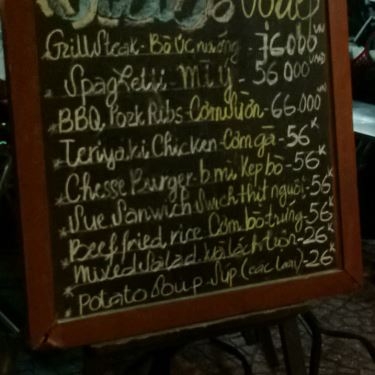 Grill Steak - Bò Úc nướng - 76000 VND
* Spaghetti - Mì ý - 56 000 VND
* BBQ Pork Ribs - Cơm sườn - 66.000 VND
* Teriyaki Chicken - Cơm gà - 56 K
* Chesse Burger - b mì kẹp bò - 56 K
* Sue Sanwich Swich thịt nguội - 56 K
* Beef fried rice Cơm bò trứng - 56 K
Mixed Salad xà lách trộn - 26 K
* Potato Soup Súp (các loại) - 26 K